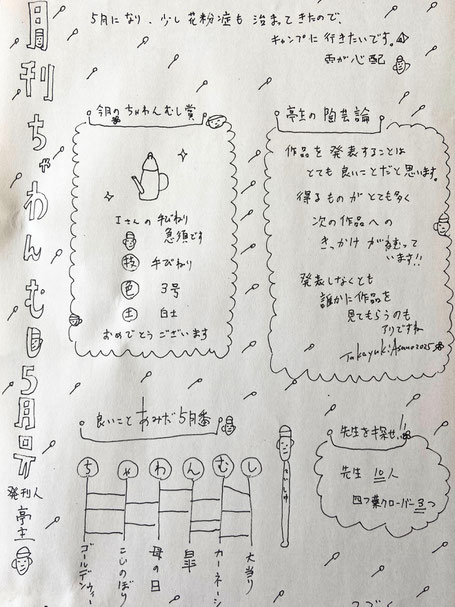 月刊ちゃわんむし5月号
発刊人
亭主
5月になり、少し花粉症も治まってきたので、
キャンプに行きたいです。
雨が心配
今月のちゃわんむし賞
Iさんの手びねり
急須です
技 手びねり
色 3号
土 白土
おめでとうございます
亭主の陶芸論
作品を発表することは
とても良いことだと思います。
得るものがとても多く
次の作品への
きっかけが
います!!
発表しなくとも
誰かに作品を
見てもらうのも
アリですね
Takayuki Asano 2025
良いことあみだ5月番
ちゃわんむし
ゴールデンウィー
こいのぼり
母の日
カーネーシ
大当り
先生を探せ!!
先生 10人
四つ葉クローバー 3つ